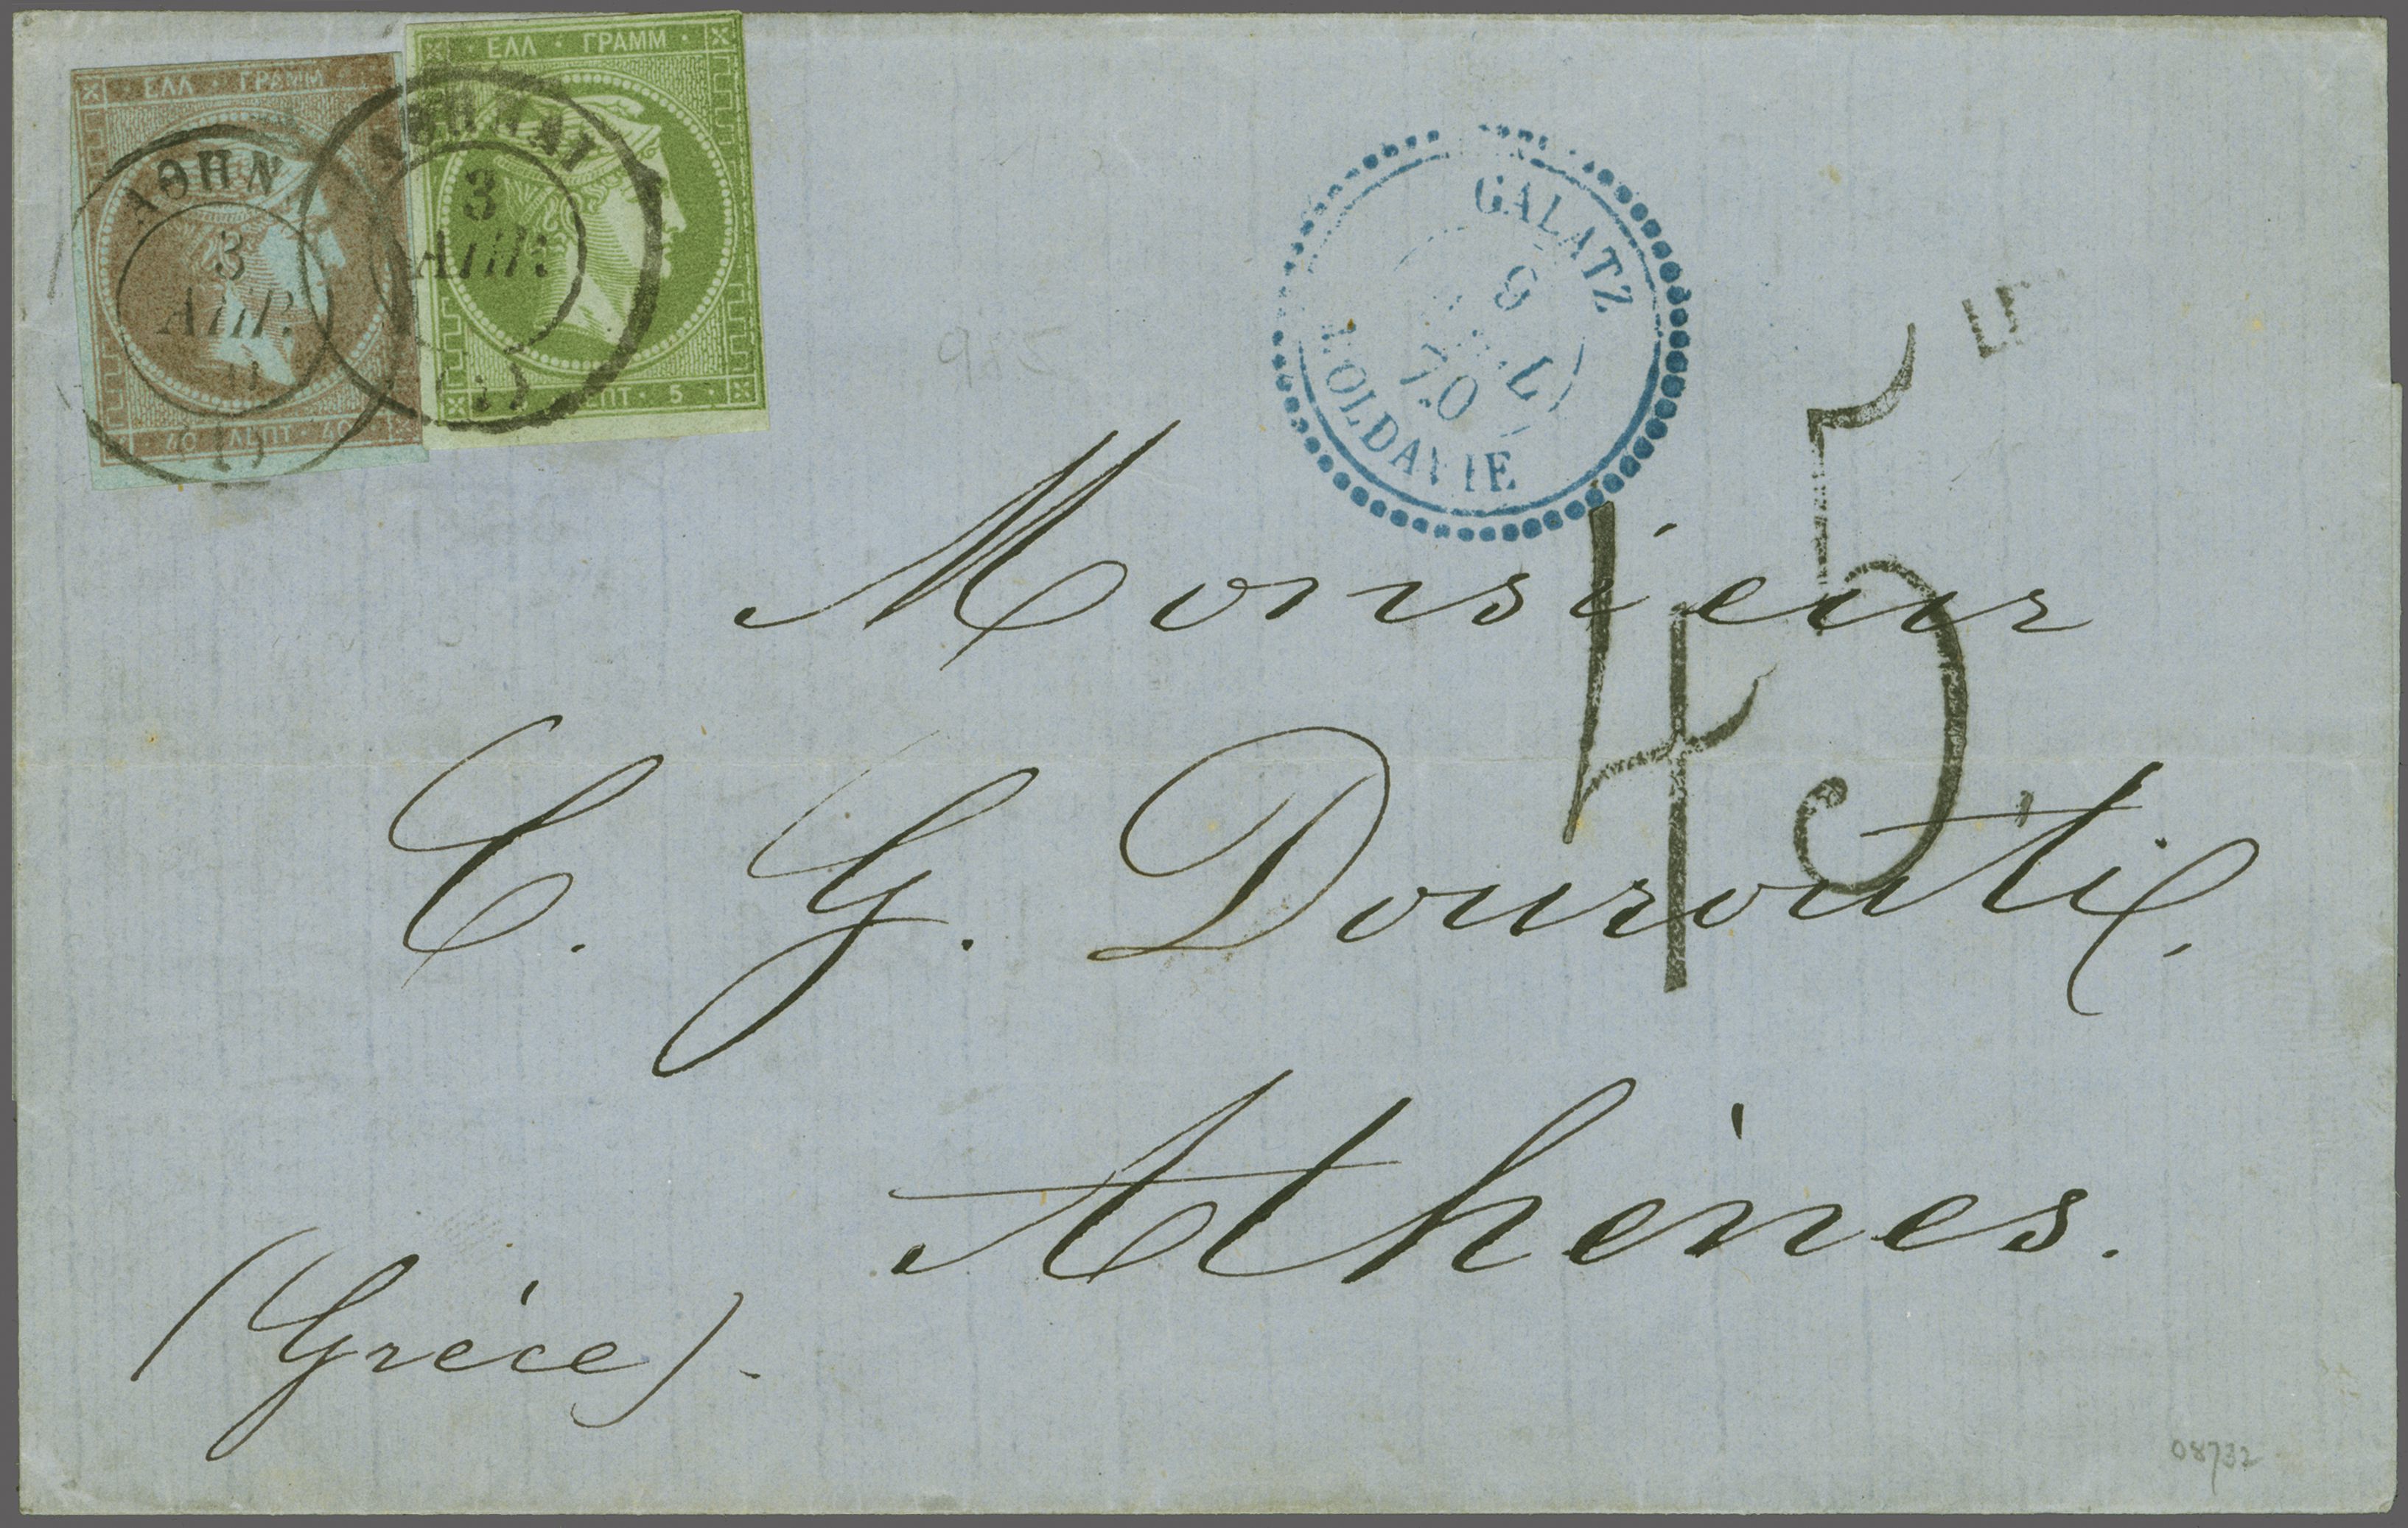 ΕΛΛ · ΓΡΑΜΜ
40 ΛΕΠΤ · 40
ΑΘΗΝ
3
ΑΠΡ.
ΕΛΛ · ΓΡΑΜΜ ·
ΕΠΤ · 5 ·
ΑΘΗΝΑΙ
3
ΑΠΡ
GALATZ
9
70
MOLDAVIE
45
Monsieur
C. G. Douroutti,
Athènes.
(Grèce).
08732